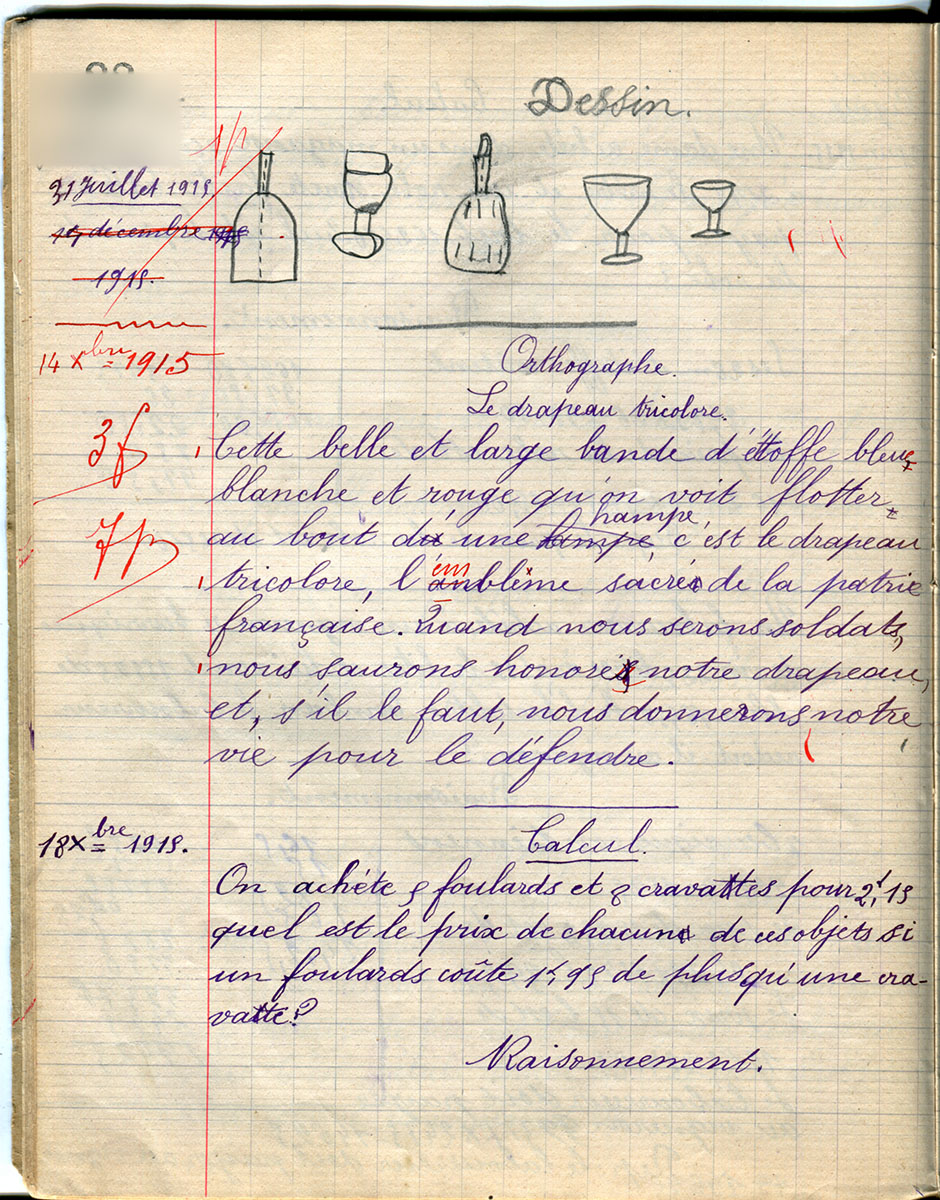 Dessin.
1p
31 Juillet 1915
décembre
1915.
14 Xbre = 1915
Orthographe.
Le drapeau tricolore.
3f
Cette belle et large bande d'étoffe bleue,
blanche et rouge qu'on voit flotter
7p
hampe,
au bout d'une hampe, c'est le drapeau
em
tricolore, l'anblème sacré de la patrie
française. Quand nous serons soldats,
nous saurons honorer notre drapeau,
et, s'il le faut, nous donnerons notre
vie pour le défendre.
18 Xbre = 1915.
Calcul.
On achéte foulards et cravattes pour
quel est le prix de chacun de ces objets si
un foulards coûte 1f,95 de plus qu'une cra-
vatte?
Raisonnement.